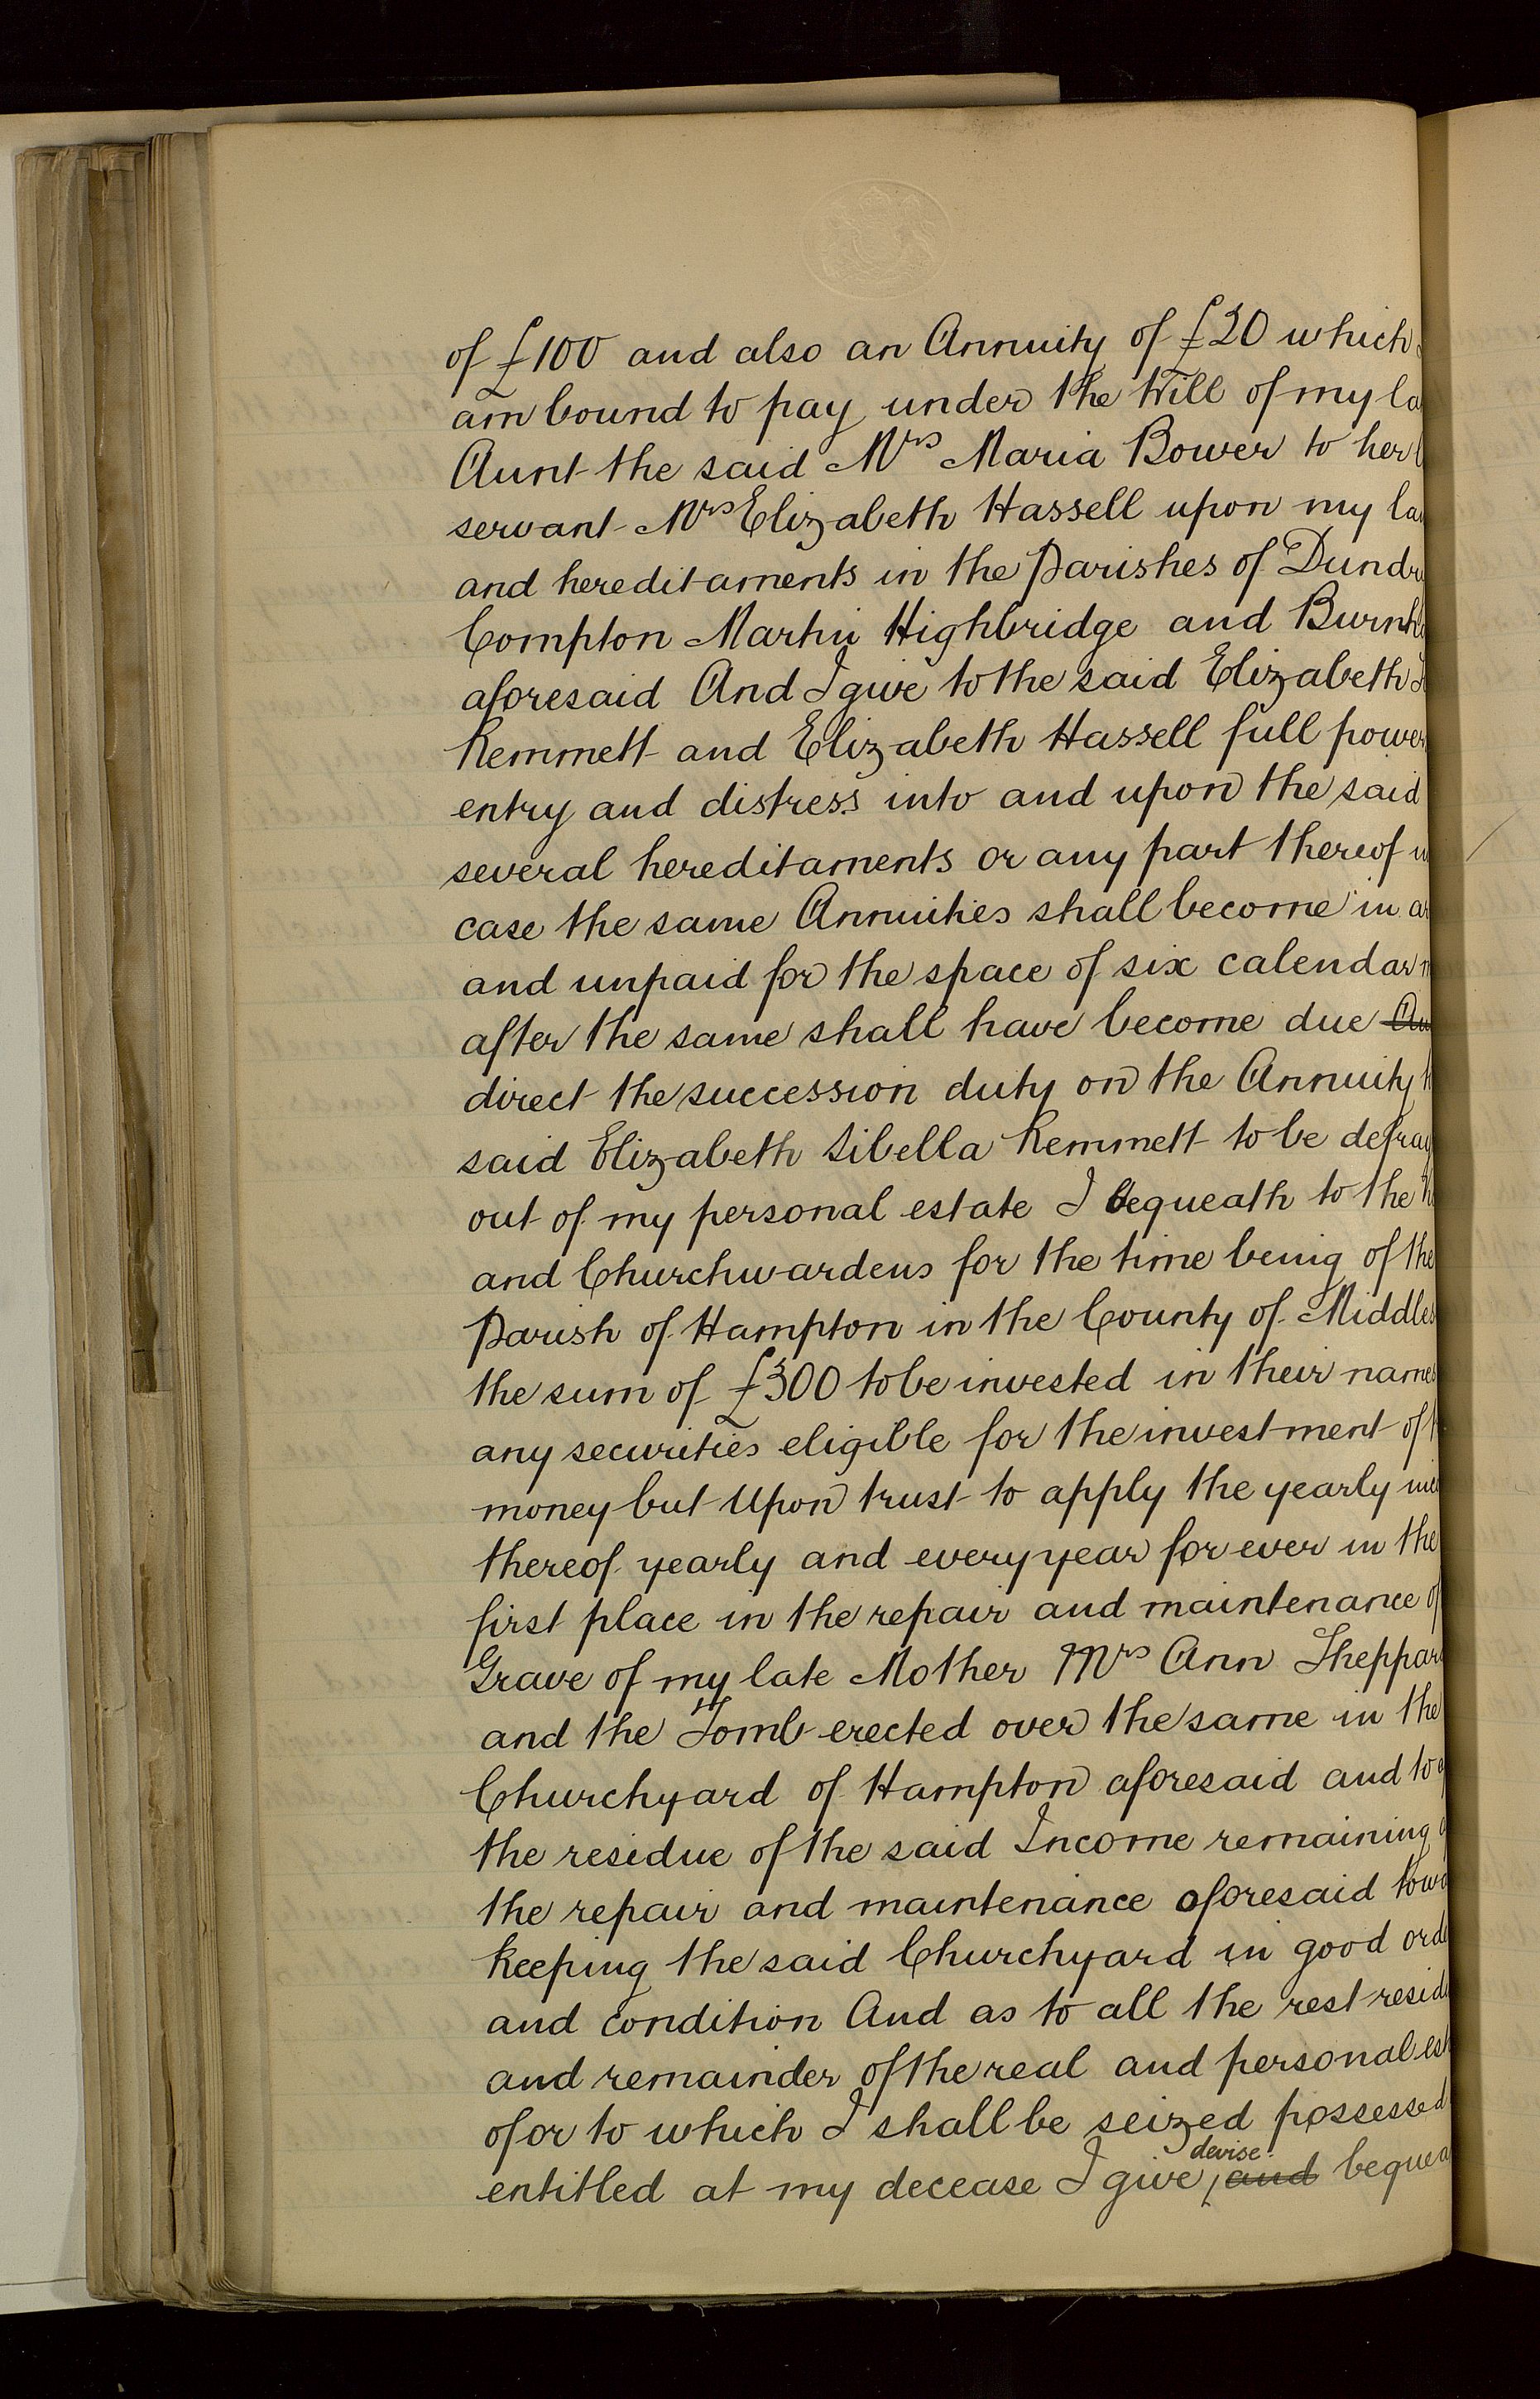 of £100 and also an Annuity of £20 which
am bound to pay under the Will of my la
Aunt the said Mrs Maria Bower to her
servant Mrs Elizabeth Hassell upon my la
and hereditaments in the Parishes of Dundr
Compton Martin Highbridge and Burnh
aforesaid And I give to the said Elizabeth
Kemmett and Elizabeth Hassell full power
entry and distress into and upon the said
several hereditaments or any part thereof
case the same Annuities shall become in a
and unpaid for the space of six calendar
after the same shall have become due
direct the succession duty on the Annuity
said Elizabeth Sibella Kemmett to be defray
out of my personal estate I bequeath to the
and Churchwardens for the time being of the
Parish of Hampton in the County of Middles
the sum of £300 to be invested in their names
any securities eligible for the investment of
money but Upon trust to apply the yearly
thereof yearly and every year for ever in the
first place in the repair and maintenance of
Grave of my late Mother Mrs Ann Sheppard
and the Tomb erected over the same in the
Churchyard of Hampton aforesaid and to
the residue of the said Income remaining
the repair and maintenance aforesaid towa
keeping the said Churchyard in good orde
and condition And as to all the rest resid
and remainder of the real and personal est
of or to which I shall be seized possessed
devise
entitled at my decease I give and bequea